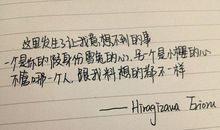 这里发生了让我意想不到的事
一个是你的隐身份要您的心，另一个是小樱的心
不管哪一个人，跟我料想的都不一样
—— Hiragizawa Eriol